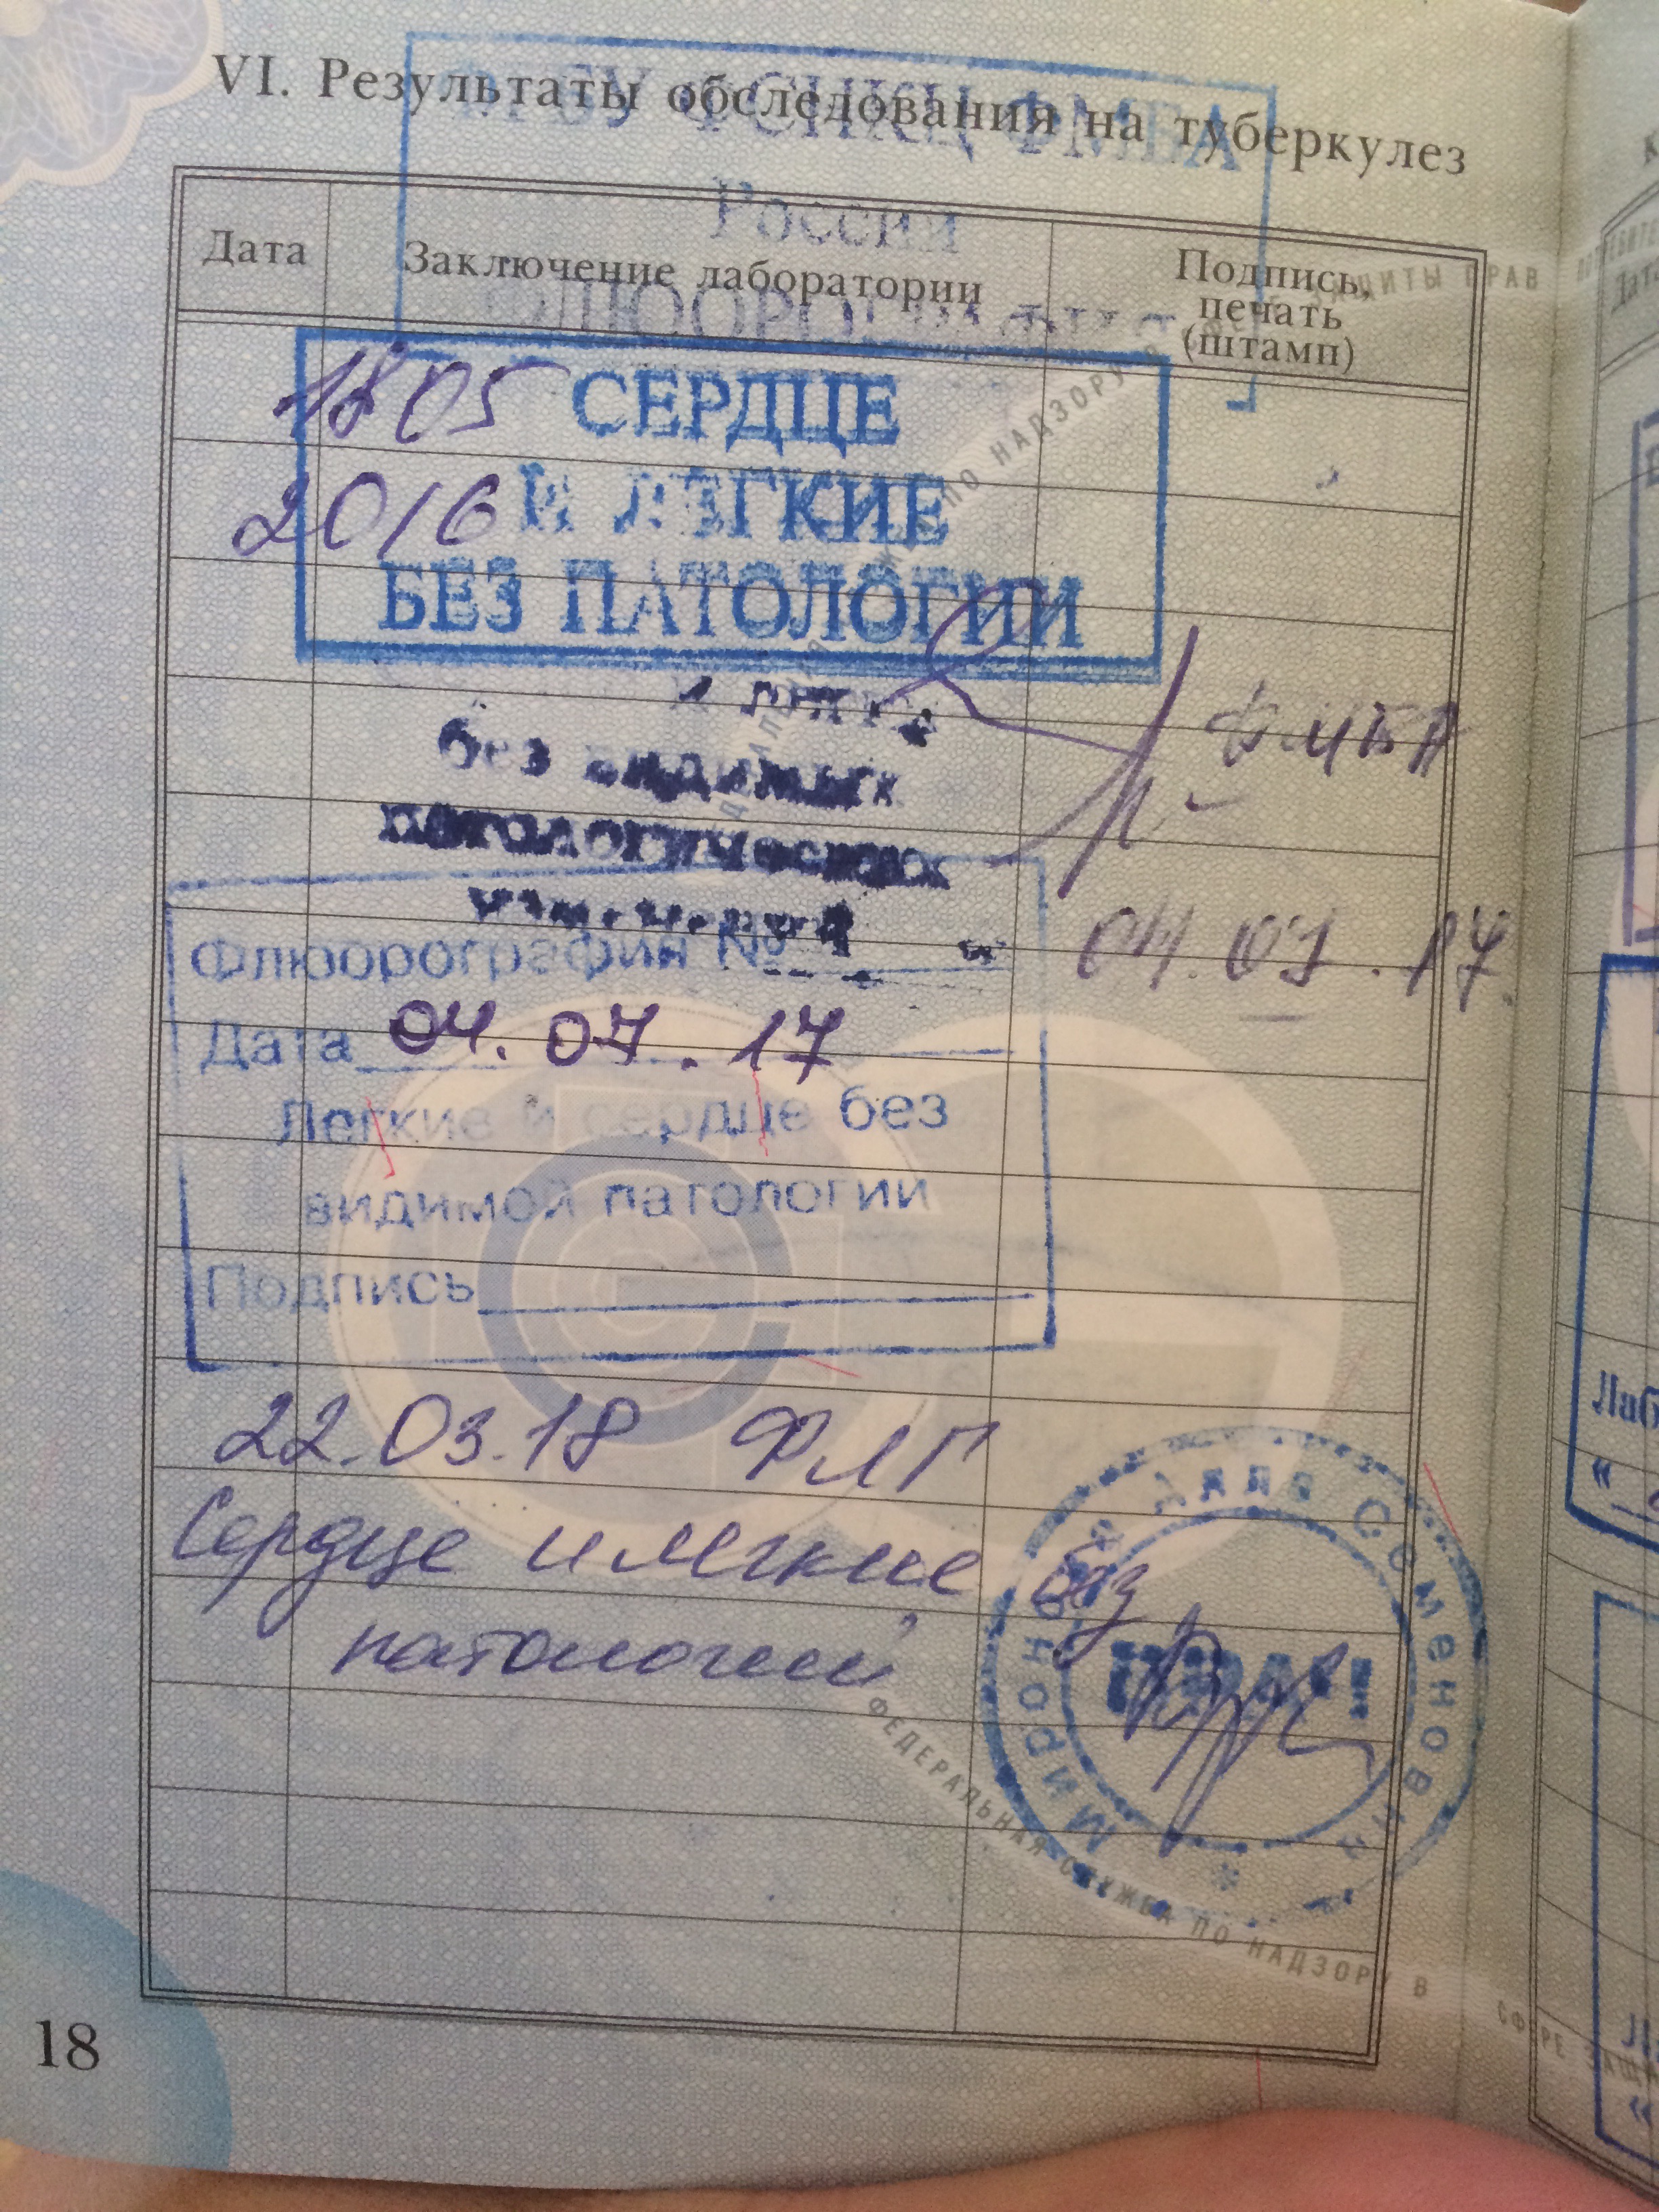 VI. Результаты обследования на туберкулез
ФГБУ ФСНКЦ ФМБА
России
ФЛЮОРОГРАФИЯ
Дата
Заключение лаборатории
Подпись,
печать
(штамп)
18 05
2016
СЕРДЦЕ
И ЛЕГКИЕ
БЕЗ ПАТОЛОГИИ
без видимых
патологических
изменений
ФМБА
04.07.17
Флюорография №
Дата 04.07.17
Легкие и сердце без
видимой патологии
Подпись
22.03.18 ФЛГ
Сердце и легкие без
патологий
Алла Семеновна
ВРАЧ
ФЕДЕРАЛЬНАЯ СЛУЖБА ПО НАДЗОРУ В СФЕРЕ ЗАЩИТЫ
ПО НАДЗОРУ
ЗАЩИТЫ ПРАВ
18